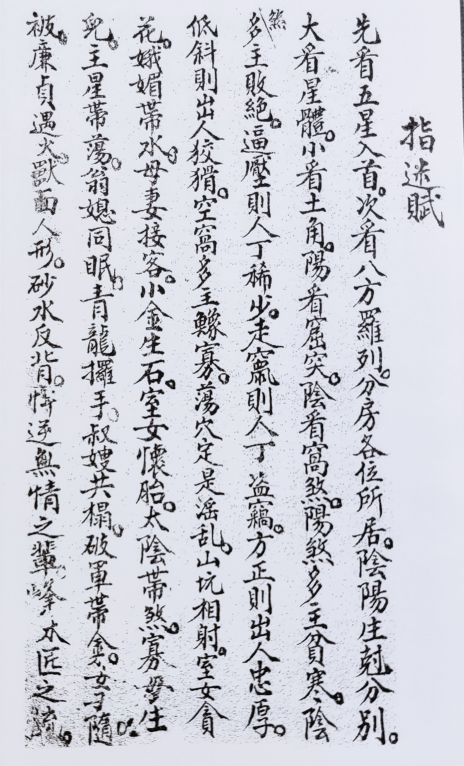 指迷賦
先看五星入首。次看八方羅列。分房各位所居。陰陽生尅分別。
大看星體。小看土角。陽看窟突。陰看窩煞。陽煞多主貧寒。陰
煞多主敗絕。逼壓則人丁稀少。走竄則人丁盜竊。方正則出人忠厚。
低斜則出人狡猾。空窩多主鰥寡。蕩穴定是淫乱。山坑相射。室女貪
花。娥媚帶水。母妻接客。小金生石。室女懷胎。太陰帶煞。寡母生
兒。主星帶蕩。翁媳同眠。青龍擺手。叔嫂共榻。破軍帶金。女子隨
被。廉貞遇火。獸面人形。砂水反背。悖逆無情之輩。峰木匠之流。